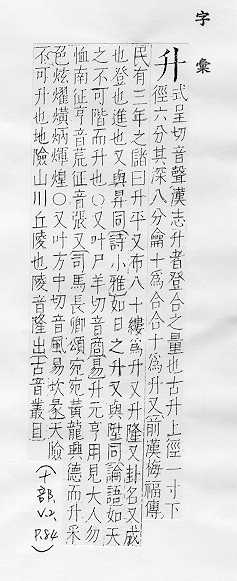 字彙
升
式呈切音聲漢志升者登合之量也古升上徑一寸下
徑六分其深八分龠十為合合十為升又前漢梅福傳
民有三年之儲曰升平又布八十縷為升又升隆又卦名又成
也登也進也又與昇同詩小雅如日之升又與陞同論語如天
之不可階而升也〇又叶尸羊切音商易升元亨用見大人勿
恤南征亨音荒征音張又司馬長卿頌宛宛黃龍興德而升采
色炫燿熿炳煇煌〇又叶方中切音風易坎彖天險
不可升也地險山川丘陵也陵音隆出古音叢且
(十部
V.2,
P.84)